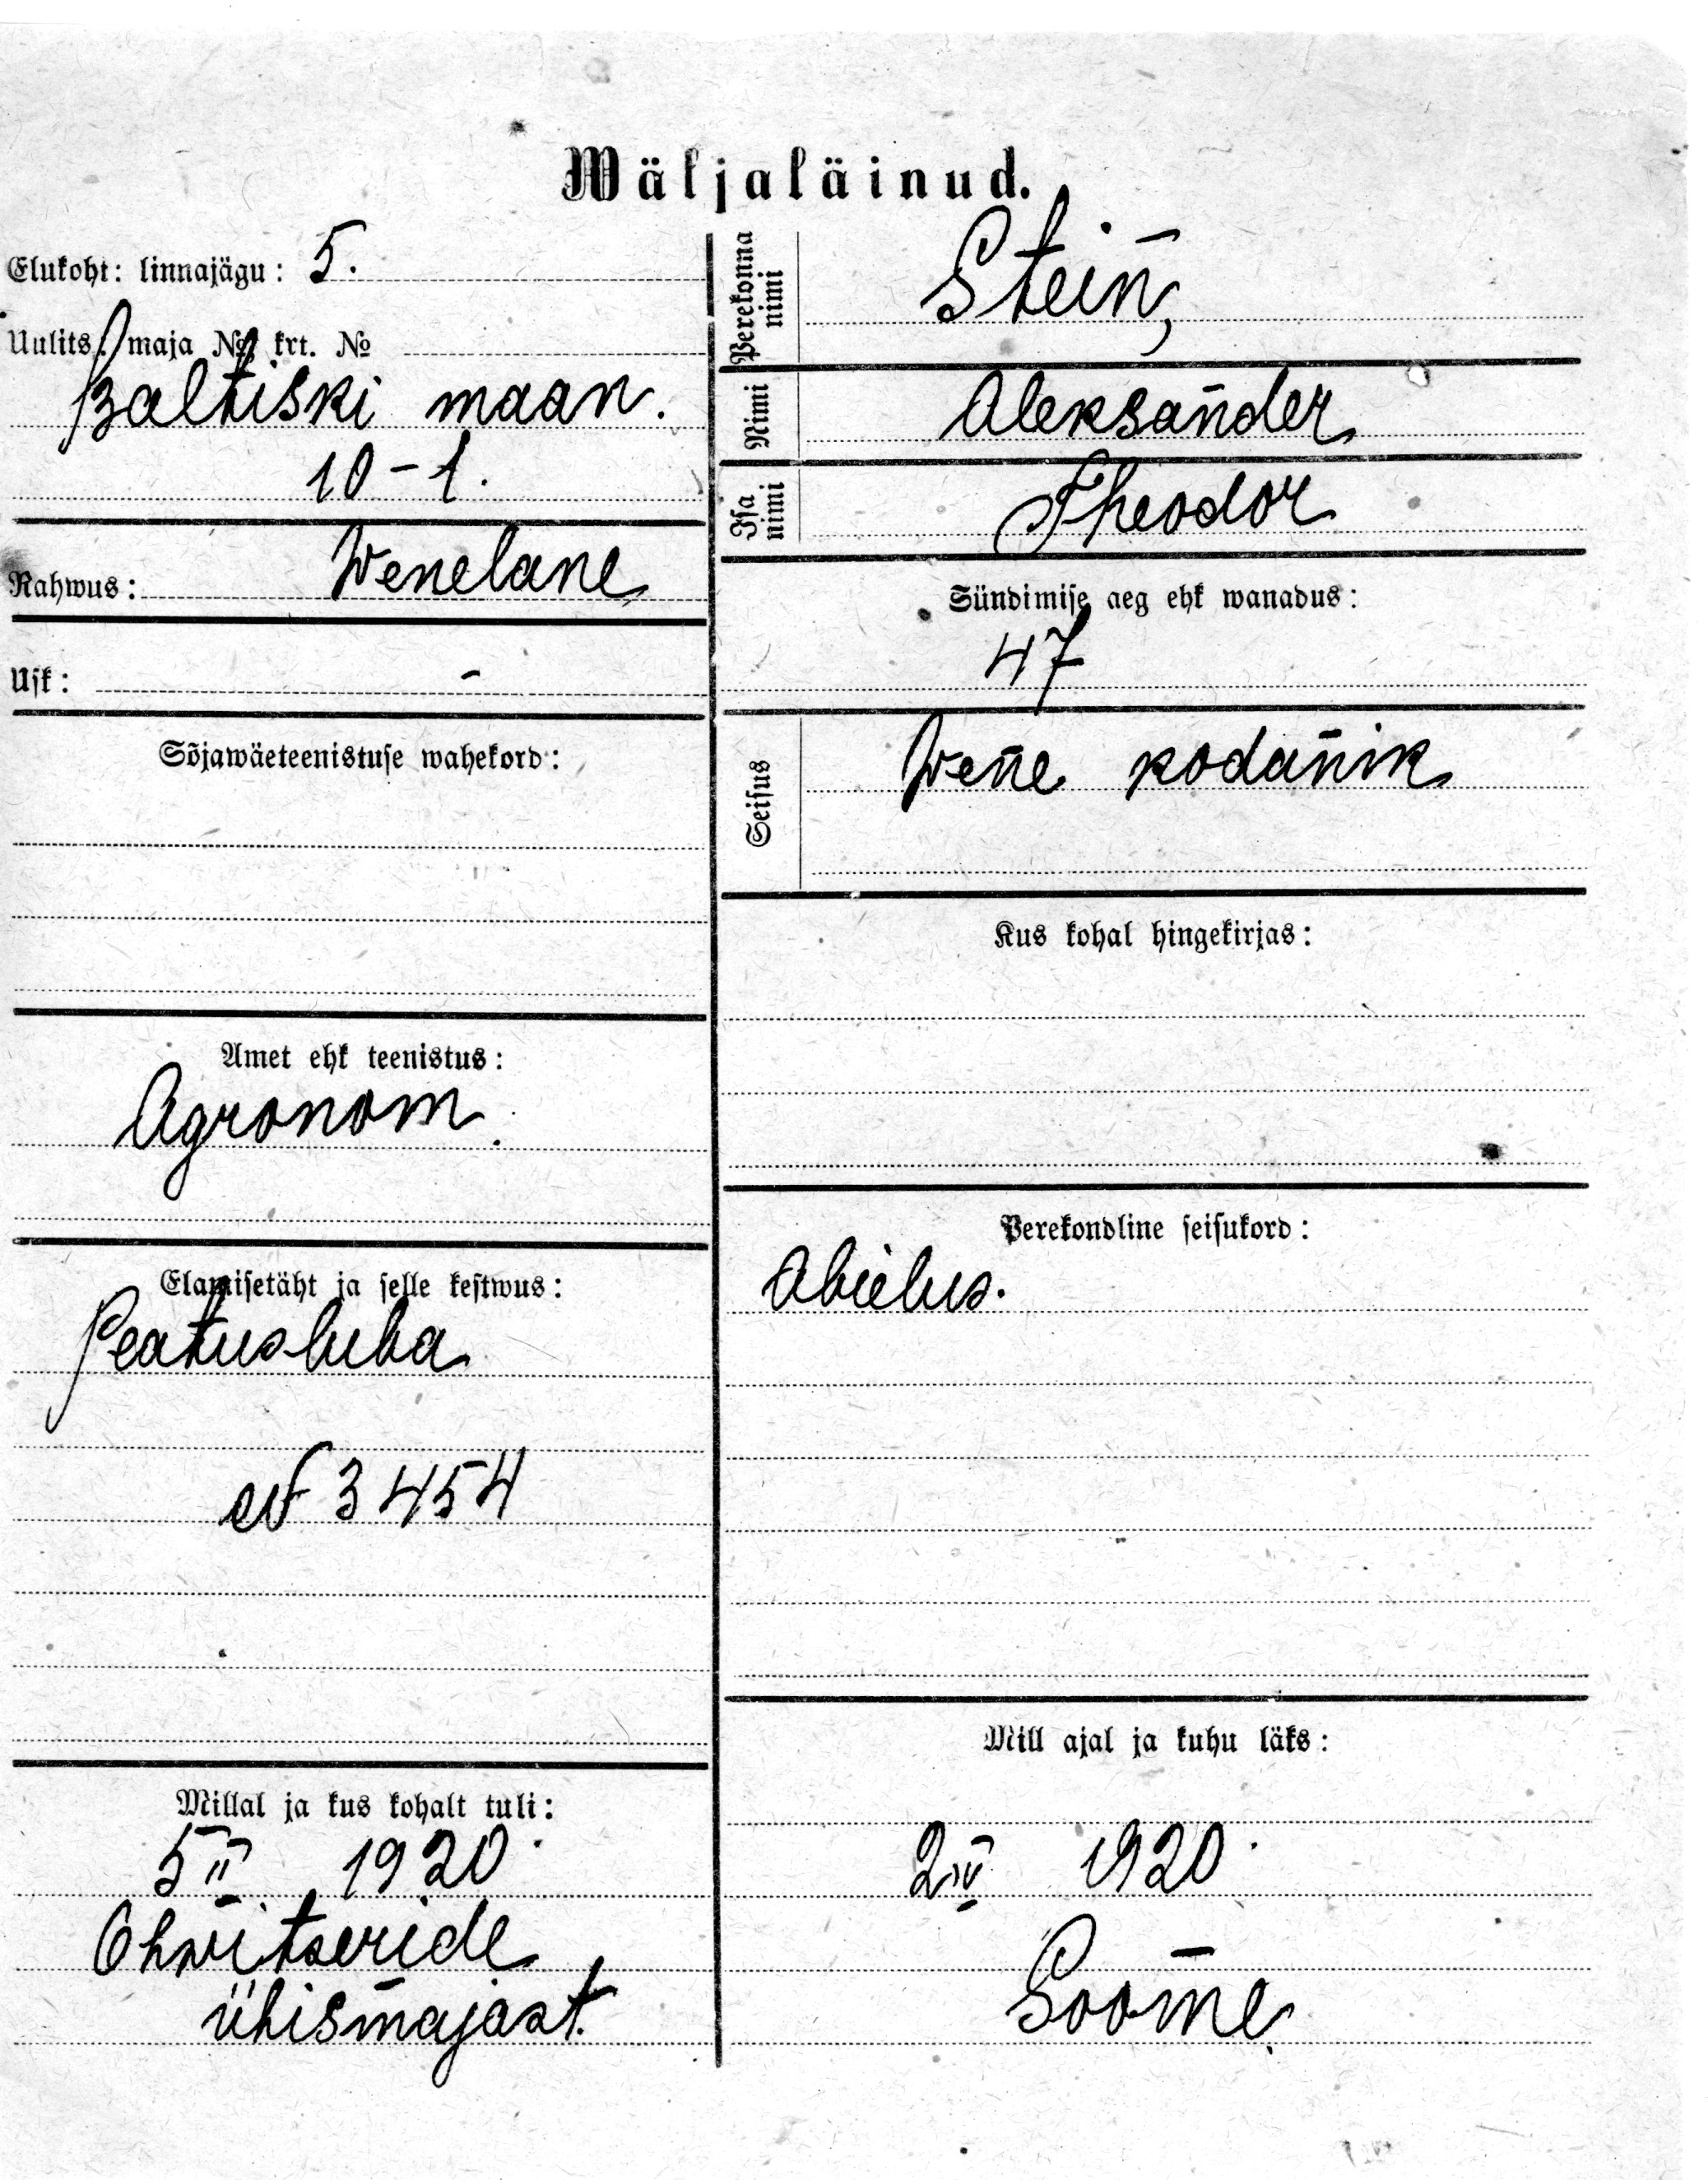 Wäljaläinud.
Elukoht: linnajägu: 5.
Uulits, maja № krt. №
Baltiski maan.
10-1.
Rahwus: Wenelane
Usk: -
Sõjawäeteenistuse wahekord:
Amet ehk teenistus:
Agronom.
Elamisetäht ja selle kestwus:
Peatusluba
№ 3454
Millal ja kus kohalt tuli:
5 II 1920.
Ohwitseride
ühismajast.
Perekonna
nimi
Stein,
Nimi
Aleksander
Isa
nimi
Theodor
Sündimise aeg ehk wanadus:
47
Seisus
Wene kodanik
Kus kohal hingekirjas:
Perekondline seisukord:
Abielus.
Mill ajal ja kuhu läks:
2 IV 1920.
Soome.